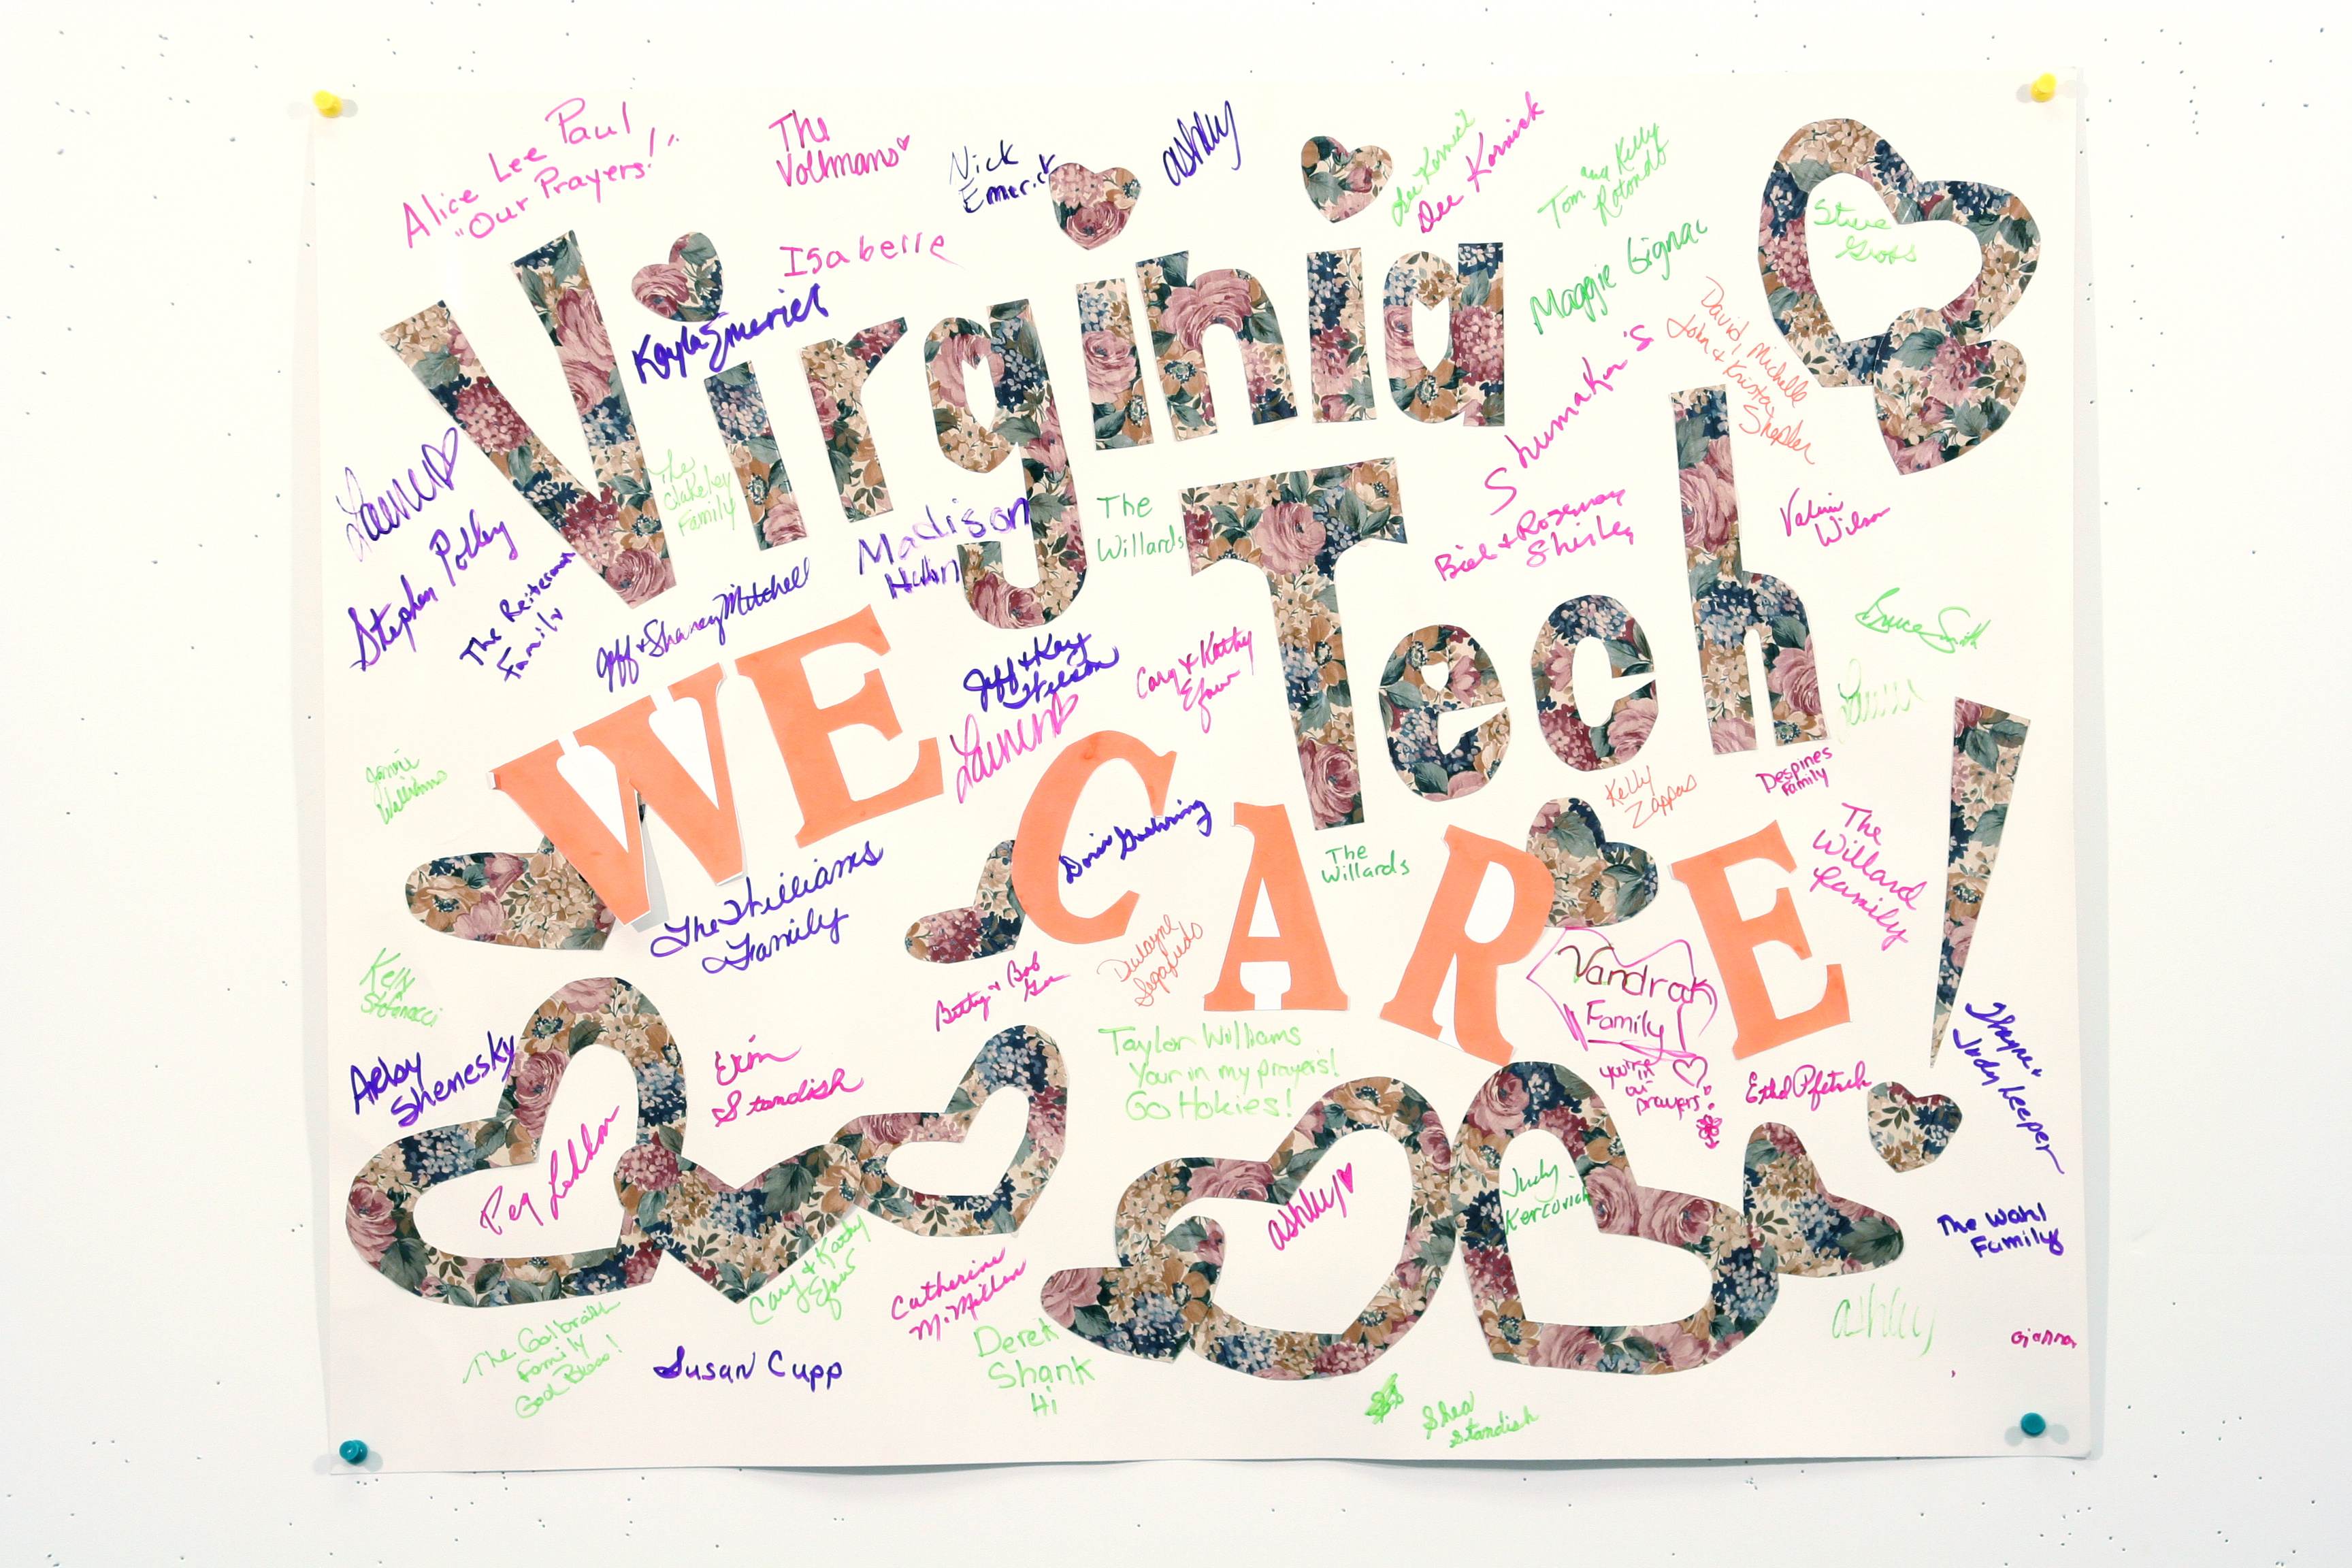 Alice Lee Paul
"Our Prayers!"
The
Vollmans
Nick
Emerick
ashley
Dee Kornick
Dee Kornick
Tom and Kelly
Rotondo
Isabelle
Kayla Emerick
Maggie Gignac
Steve
Gross
Virginia
Shumaker's
David, Michelle
John & Krista
Shepler
Lauren
Stephen Polley
The Reiterman
Family
The
Blakeley
Family
Jeff & Shaney Mitchell
Madison
Hahn
The
Willards
Bill & Rosemary
Shirley
Valerie
Wilson
Tech
Bruce Smith
Jeff & Kay
Nelson
Cary & Kathy
Efaw
Lauren
Lauren
WE CARE!
Kelly
Zappas
Despines
Family
The
Willard
Family
Doris Guehring
The
Willards
The Williams
Family
Kelly
Stefanacci
Betty & Bob
Dwayne
Vandrak
Family
you're
in
our
prayers!
Artsy
Shenesky
Erin
Standish
Taylor Williams
Your in my prayers!
Go Hokies!
Ethel Pfetsch
Judy Keeper
Peg
ashley
Judy
Kercovich
The Wahl
Family
Cary & Kathy
Efaw
Catherine
McMillan
The Galbraith
Family
God Bless!
Susan Cupp
Derek
Shank
Hi
ashley
Gianna
Shea
Standish